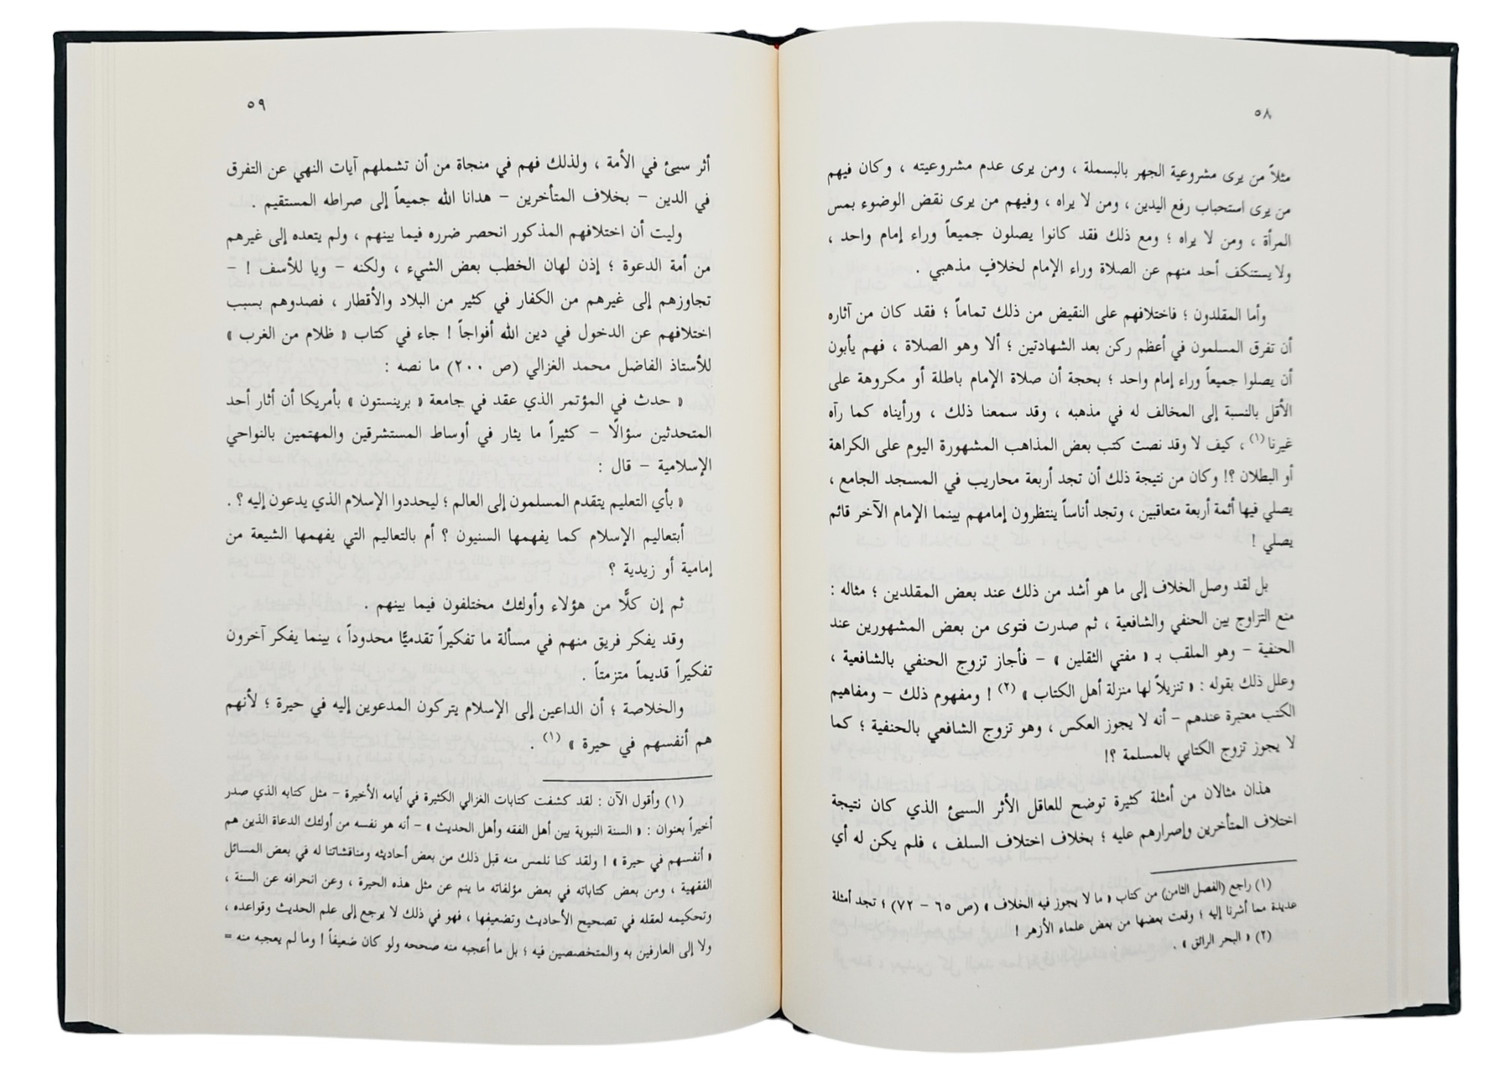 ٥٨
مثلاً من يرى مشروعية الجهر بالبسملة ، ومن يرى عدم مشروعيته ، وكان فيهم
من يرى استحباب رفع اليدين ، ومن لا يراه ، وفيهم من يرى نقض الوضوء بمس
المرأة ، ومن لا يراه ؛ ومع ذلك فقد كانوا يصلون جميعاً وراء إمام واحد ،
ولا يستنكف أحد منهم عن الصلاة وراء الإمام لخلافٍ مذهبي .
وأما المقلدون ؛ فاختلافهم على النقيض من ذلك تماماً ؛ فقد كان من آثاره
أن تفرق المسلمون في أعظم ركن بعد الشهادتين ؛ ألا وهو الصلاة ، فهم يأبون
أن يصلوا جميعاً وراء إمام واحد ؛ بحجة أن صلاة الإمام باطلة أو مكروهة على
الأقل بالنسبة إلى المخالف له في مذهبه ، وقد سمعنا ذلك ، ورأيناه كما رآه
غيرنا (١) ، كيف لا وقد نصت كتب بعض المذاهب المشهورة اليوم على الكراهة
أو البطلان ؟! وكان من نتيجة ذلك أن تجد أربعة محاريب في المسجد الجامع ،
يصلي فيها أئمة أربعة متعاقبين ، وتجد أناساً ينتظرون إمامهم بينما الإمام الآخر قائم
يصلي !
بل لقد وصل الخلاف إلى ما هو أشد من ذلك عند بعض المقلدين ؛ مثاله :
منع التزاوج بين الحنفي والشافعية ، ثم صدرت فتوى من بعض المشهورين عند
الحنفية - وهو الملقب بـ « مفتي الثقلين » - فأجاز تزوج الحنفي بالشافعية ،
وعلل ذلك بقوله : « تنزيلاً لها منزلة أهل الكتاب » (٢) ! ومفهوم ذلك - ومفاهيم
الكتب معتبرة عندهم - أنه لا يجوز العكس ، وهو تزوج الشافعي بالحنفية ؛ كما
لا يجوز تزوج الكتابي بالمسلمة ؟!
هذان مثالان من أمثلة كثيرة توضح للعاقل الأثر السيئ الذي كان نتيجة
اختلاف المتأخرين وإصرارهم عليه ؛ بخلاف اختلاف السلف ، فلم يكن له أي
(١) راجع (الفصل الثامن) من كتاب « ما لا يجوز فيه الخلاف » (ص ٦٥ - ٧٢) ؛ تجد أمثلة
عديدة مما أشرنا إليه ؛ وقعت بعضها من بعض علماء الأزهر !
(٢) « البحر الرائق » .
٥٩
أثر سيئ في الأمة ، ولذلك فهم في منجاة من أن تشملهم آيات النهي عن التفرق
في الدين - بخلاف المتأخرين - هدانا الله جميعاً إلى صراطه المستقيم .
وليت أن اختلافهم المذكور انحصر ضرره فيما بينهم ، ولم يتعده إلى غيرهم
من أمة الدعوة ؛ إذن لهان الخطب بعض الشيء ، ولكنه - ويا للأسف ! -
تجاوزهم إلى غيرهم من الكفار في كثير من البلاد والأقطار ، فصدوهم بسبب
اختلافهم عن الدخول في دين الله أفواجاً ! جاء في كتاب « ظلام من الغرب »
للأستاذ الفاضل محمد الغزالي (ص ٢٠٠) ما نصه :
« حدث في المؤتمر الذي عقد في جامعة « برينستون » بأمريكا أن أثار أحد
المتحدثين سؤالًا - كثيراً ما يثار في أوساط المستشرقين والمهتمين بالنواحي
الإسلامية - قال :
« بأي التعليم يتقدم المسلمون إلى العالم ؛ ليحددوا الإسلام الذي يدعون إليه ؟ .
أبتعاليم الإسلام كما يفهمها السنيون ؟ أم بالتعاليم التي يفهمها الشيعة من
إمامية أو زيدية ؟
ثم إن كلًّا من هؤلاء وأولئك مختلفون فيما بينهم .
وقد يفكر فريق منهم في مسألة ما تفكيراً تقدميًّا محدوداً ، بينما يفكر آخرون
تفكيراً قديماً متزمتاً .
والخلاصة ؛ أن الداعين إلى الإسلام يتركون المدعوين إليه في حيرة ؛ لأنهم
هم أنفسهم في حيرة » (١) .
(١) وأقول الآن : لقد كشفت كتابات الغزالي الكثيرة في أيامه الأخيرة - مثل كتابه الذي صدر
أخيراً بعنوان : « السنة النبوية بين أهل الفقه وأهل الحديث » - أنه هو نفسه من أولئك الدعاة الذين هم
« أنفسهم في حيرة » ! ولقد كنا نلمس منه قبل ذلك من بعض أحاديثه ومناقشاتنا له في بعض المسائل
الفقهية ، ومن بعض كتاباته في بعض مؤلفاته ما ينم عن مثل هذه الحيرة ، وعن انحرافه عن السنة ،
وتحكيمه لعقله في تصحيح الأحاديث وتضعيفها ، فهو في ذلك لا يرجع إلى علم الحديث وقواعده ،
ولا إلى العارفين به والمتخصصين فيه ؛ بل ما أعجبه منه صححه ولو كان ضعيفاً ! وما لم يعجبه منه =